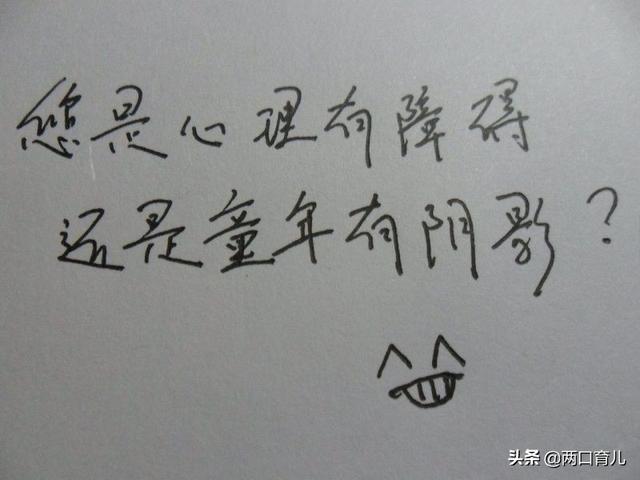 您是心理有障碍
还是童年有阴影？
头条 @两口育儿